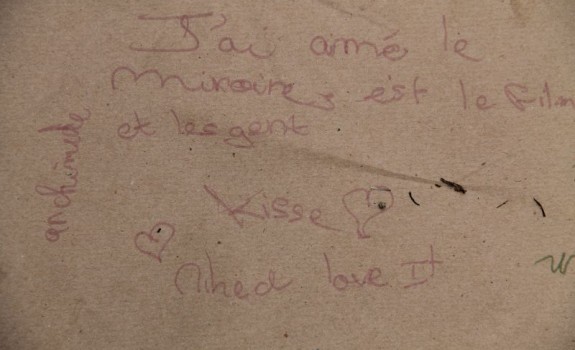 J'ai aimé le
Miroires est le film
et les gent
Kisse
Nihed love It
archimède